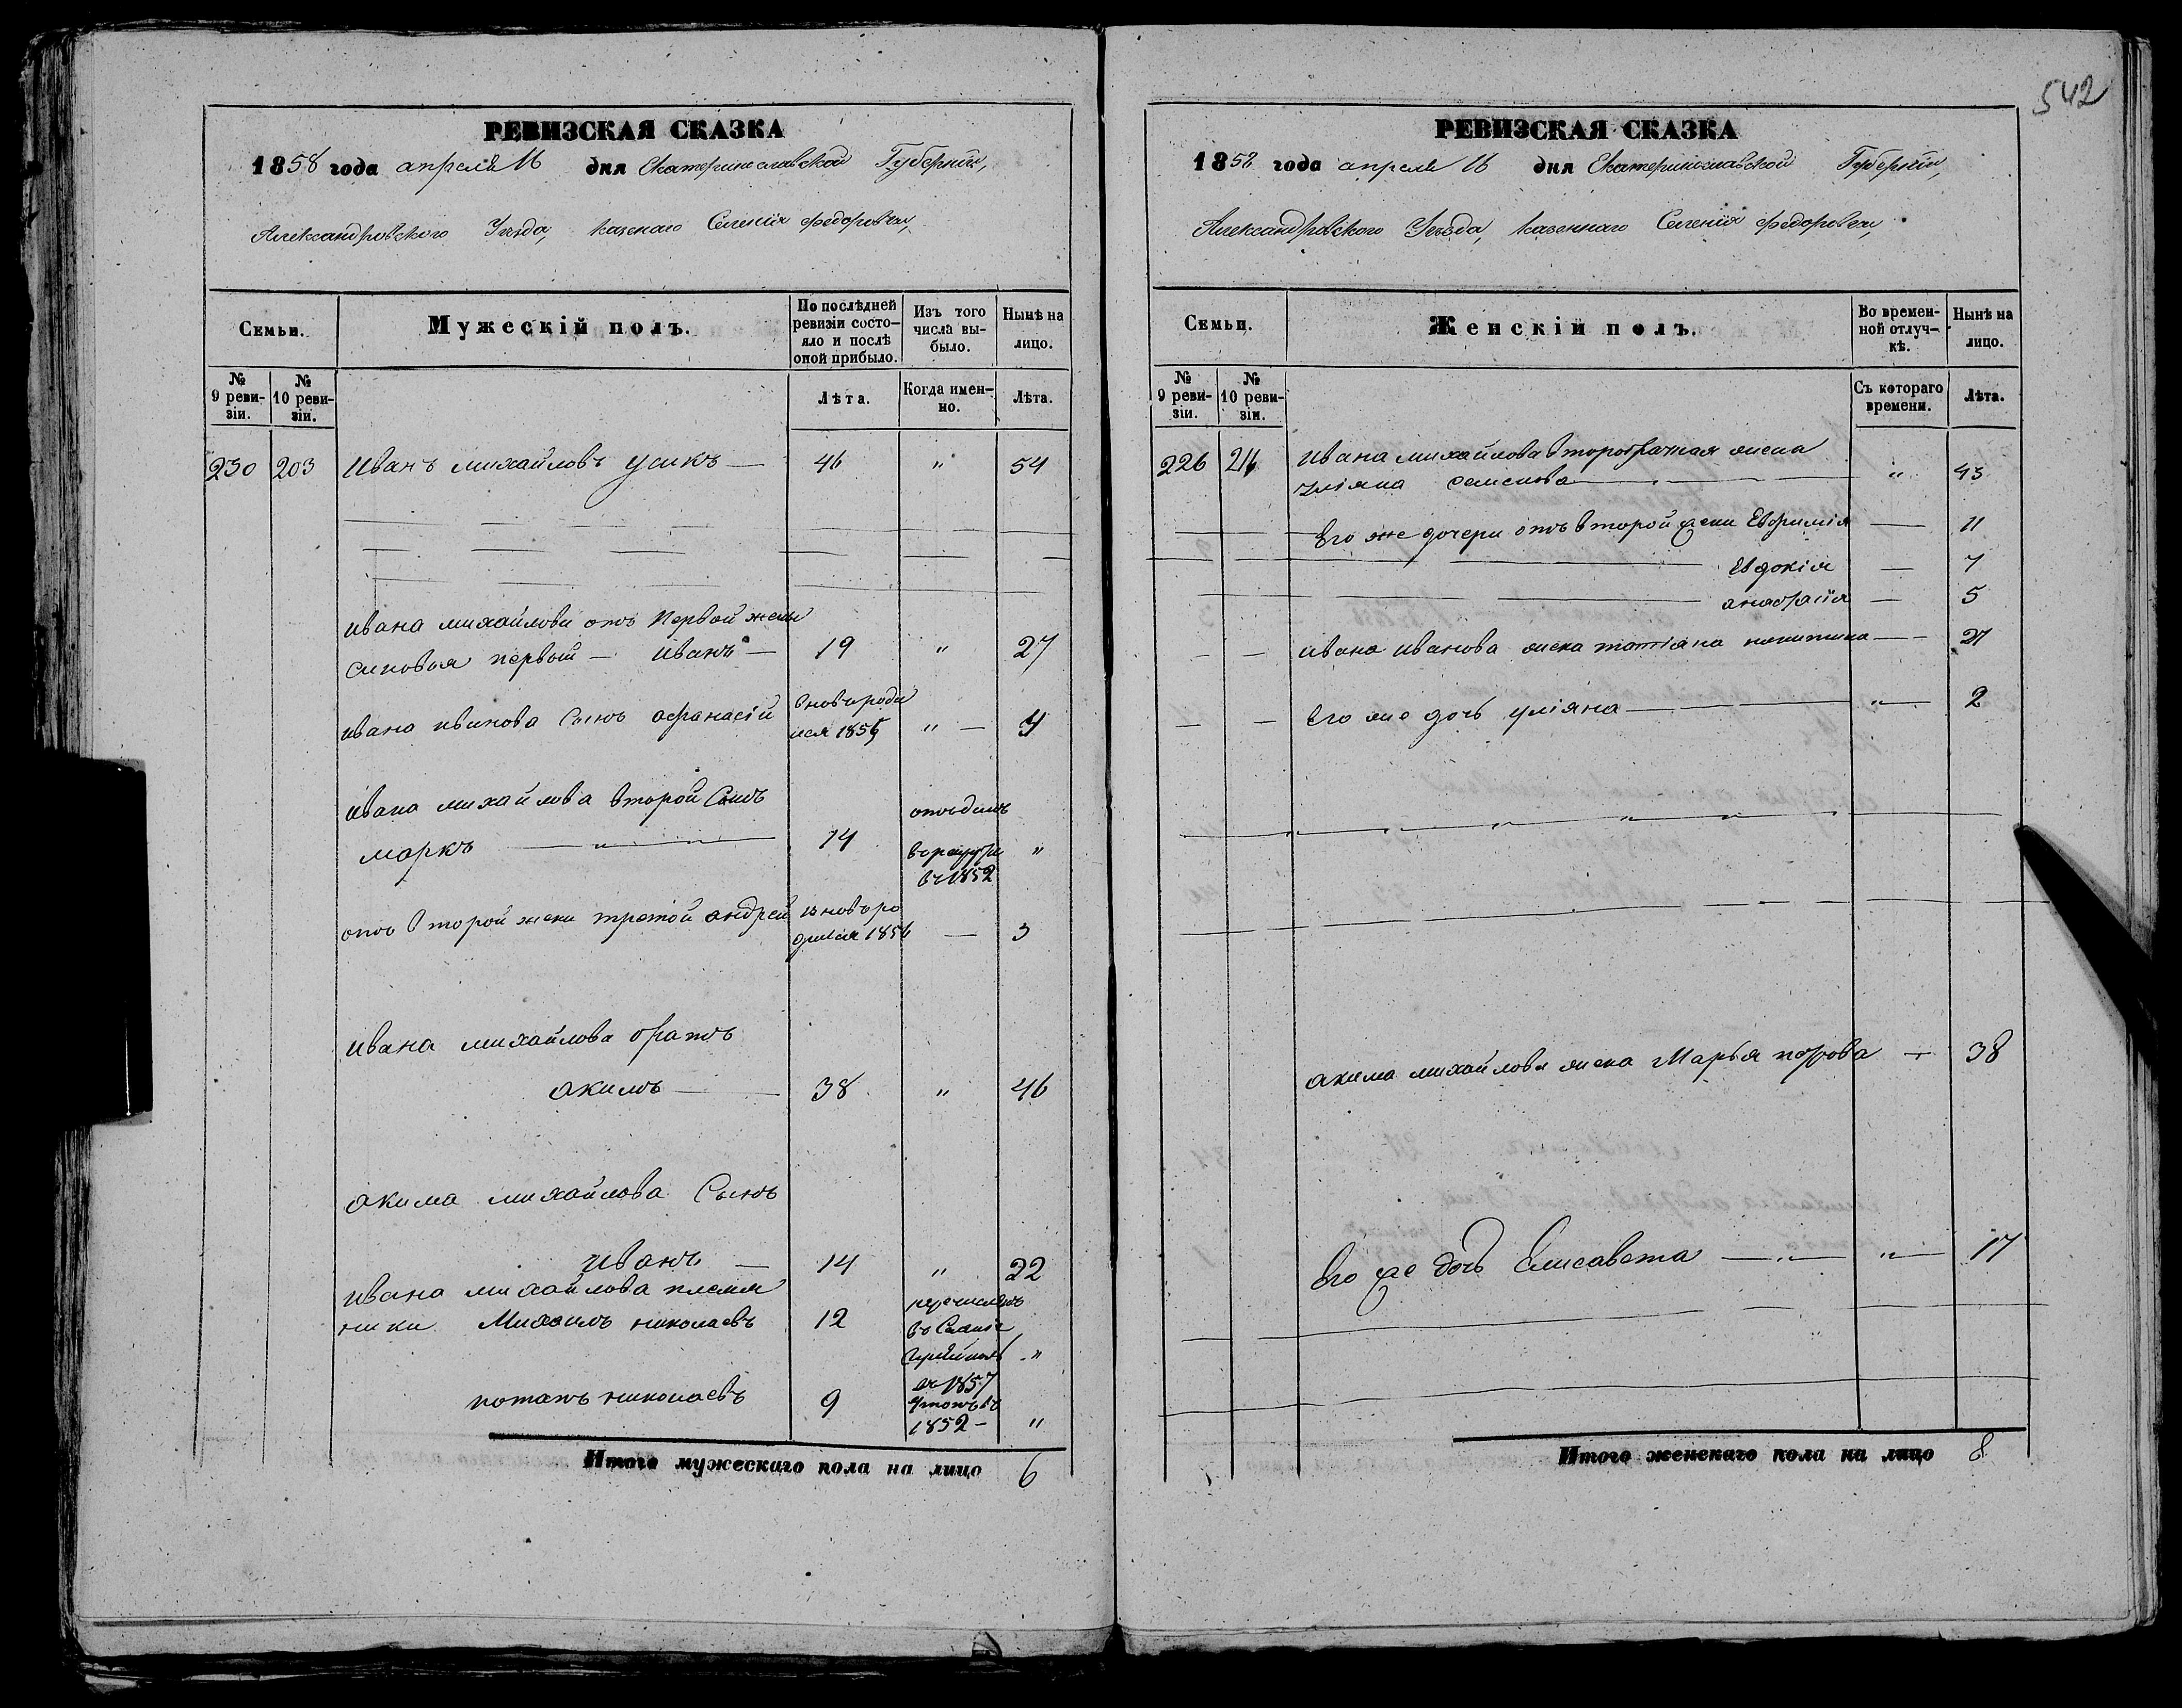 542
РЕВИЗСКАЯ СКАЗКА
1858 года апреля 16 дня Екатеринославской Губернiи,
Александровского Уезда, казенаго Селенiя Федоровки,
Семьи.
Мужескiй полъ.
По послѣдней ревизiи состо-
яло и послѣ
оной прибыло.
Изъ того
числа вы-
было.
Нынѣ на
лицо.
№
9 реви-
зiи.
№
10 реви-
зiи.
Лѣта.
Когда имен-
но.
Лѣта.
230 203 Иванъ михайловъ усикъ — 46 " 54
ивана михайлова отъ Первой жены
сыновья первый — иванъ — 19 " 27
ивана иванова Сынъ афанасiй вновь роди
лся 1855 " — 4
ивана михайлова второй Сынъ отъданъ
маркъ — " — 14 " 
въ 1852
отъ второй жены третой андрей вновь ро
дился 1856 — 3
ивана михайлова братъ
акимъ — 38 " 46
акима михайлова Сынъ
иванъ — 14 " 22
ивана михайлова племя перечисленъ
ники Михаилъ николаевъ 12 "
въ 1857
потапъ николаевъ 9 въ
1852 — "
Итого мужескаго пола на лицо 6
РЕВИЗСКАЯ СКАЗКА
1858 года апреля 16 дня Екатеринославской Губернiи,
Александровского Уезда, казеннаго Селенiя Федоровки,
Семьи.
Женскiй полъ.
Во времен-
ной отлуч-
кѣ.
Нынѣ на
лицо.
№
9 реви-
зiи.
№
10 реви-
зiи.
Съ котораго
времени.
Лѣта.
226 216 Ивана михайлова второбрачная жена
улiяна семенова — " 43
Его же дочери отъ второй жены Евфимiя — 11
Евдокiя — 7
анастасiя — 5
ивана иванова жена татiяна никитина — 27
Его же дочь улiяна — " 2
акима михайлова жена Марья петрова — 38
Его же дочь Елисавета — " — " — 17
Итого женскаго пола на лицо 8